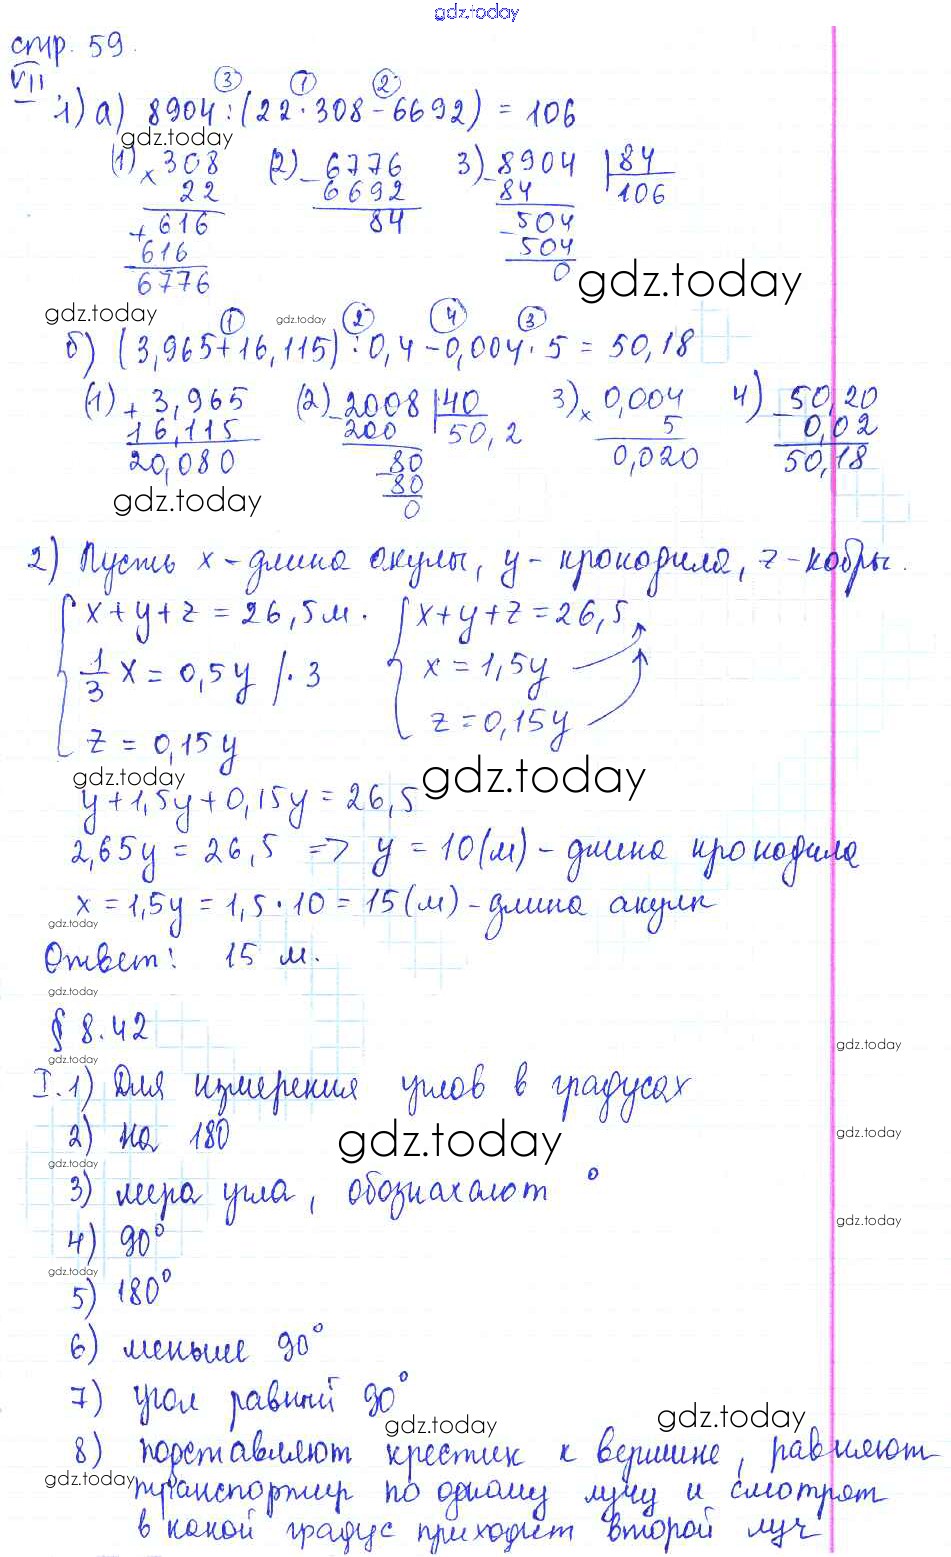 gdz.today
стр. 59.
VII 1) а) 8904 : (22 · 308 - 6692) = 106
③ ① ②
gdz.today
(1) × 308 (2) - 6776 3) - 8904 | 84
22 6692 84 106
+ 616 84 - 504
616 504
6776 0
gdz.today
gdz.today gdz.today
① ② ④ ③
б) (3,965 + 16,115) : 0,4 - 0,004 · 5 = 50,18
(1) + 3,965 (2) - 2008 | 40 3) × 0,004 4) - 50,20
16,115 200 50,2 5 0,02
20,080 - 80 0,020 50,18
80
0
gdz.today
2) Пусть x - длина акулы, y - крокодила, z - кобры.
x + y + z = 26,5 м. x + y + z = 26,5
1/3 x = 0,5y / · 3 x = 1,5y
z = 0,15y z = 0,15y
gdz.today gdz.today
y + 1,5y + 0,15y = 26,5
2,65y = 26,5 => y = 10 (м) - длина крокодила
x = 1,5y = 1,5 · 10 = 15 (м) - длина акулы
gdz.today
Ответ: 15 м.
gdz.today
§ 8.42
gdz.today
gdz.today
I. 1) Для измерения углов в градусах
2) на 180
gdz.today
gdz.today
gdz.today
3) мера угла, обозначают °
gdz.today
4) 90°
gdz.today
5) 180°
6) меньше 90°
7) угол равный 90°
gdz.today gdz.today
8) подставляют крестик к вершине, равняют
gdz.today
транспортир по одному лучу и смотрят
в какой градус приходит второй луч